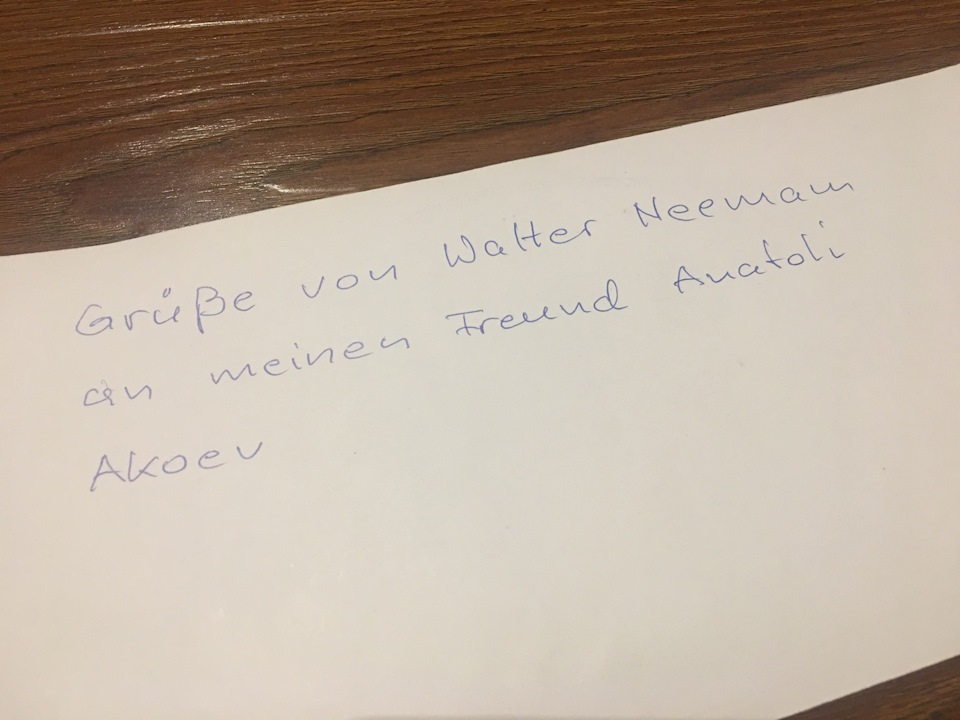 Grüße von Walter Neemann
an meinen Freund Anatoli
Akoev